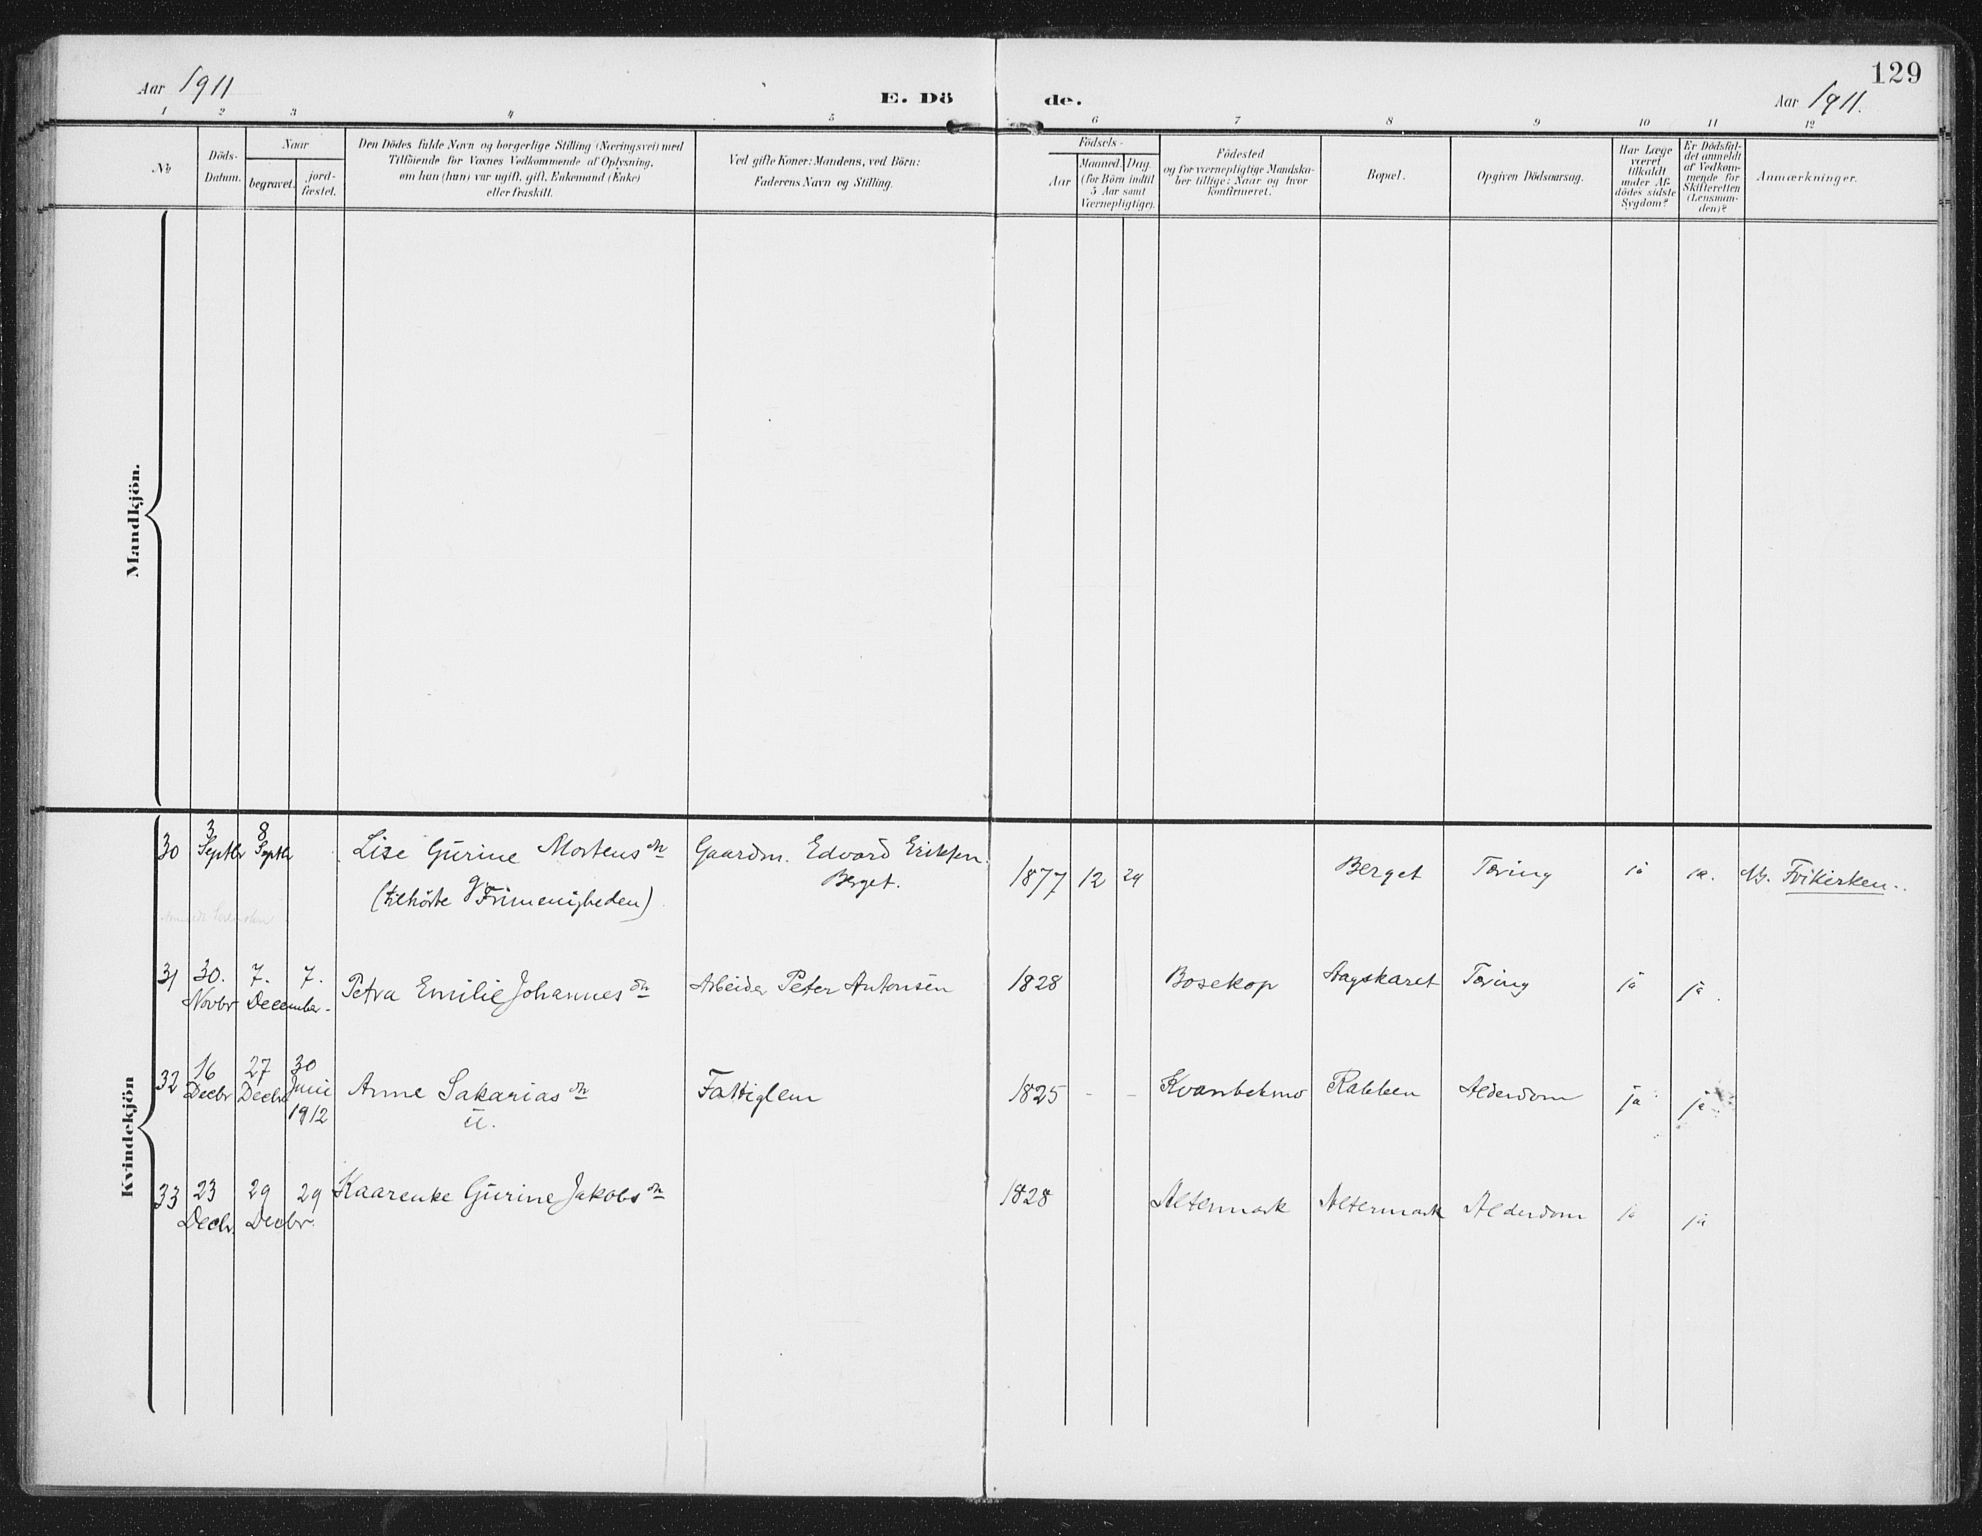 129
Aar 1911
E. Dö de.
Aar 1911.
1 2 3 4 5 6 7 8 9 10 11 12
No
Döds-
Datum.
Naar
begravet.
jord-
fæstet.
Den Dödes fulde Navn og borgerlige Stilling (Næringsvei) med
Tilföiende for Voxnes Vedkommende af Oplysning,
om han (hun) var ugift, gift, Enkemand (Enke)
eller fraskilt.
Ved gifte Koner: Mandens, ved Börn:
Faderens Navn og Stilling.
Födsels-
Aar
Maaned.
Dag.
(for Börn indtil
5 Aar samt
Værnepligtige).
Födested
og for værnepligtige Mandska-
ber tillige: Naar og hvor
konfirmeret.
Bopæl.
Opgiven Dödsaarsag.
Har Læge
været
tilkaldt
under Af-
dödes sidste
Sygdom?
Er Dödsfal-
det anmeldt
af Vedkom-
mende for
Skifteretten
(Lensman-
den)?
Anmærkninger.
Mandkjön.
Kvindekjön
30 3 Septbr 8 Septbr Lise Gurine Mortens dn Gaardm. Edvard Eriksen
Berget. 1877 12 24 Berget Tæring ja ja. Frikirken.
(tilhörte Frimenigheden)
31 30. Novbr 7. 7. December. Petra Emilie Johannes dn Arbeider Peter Antonsen 1828 Bosekop Hagskaret Tæring ja ja.
32 16 Decbr 27 Decbr 30 Juni 1912 Anne Sakarias dn Fattiglem 1825 - - Rabben Alderdom ja ja
u.
33 23 Decbr. 29 29 Decbr. Kaarenke Gurine Jakobs dn 1828 Altermark Altermark Alderdom ja ja